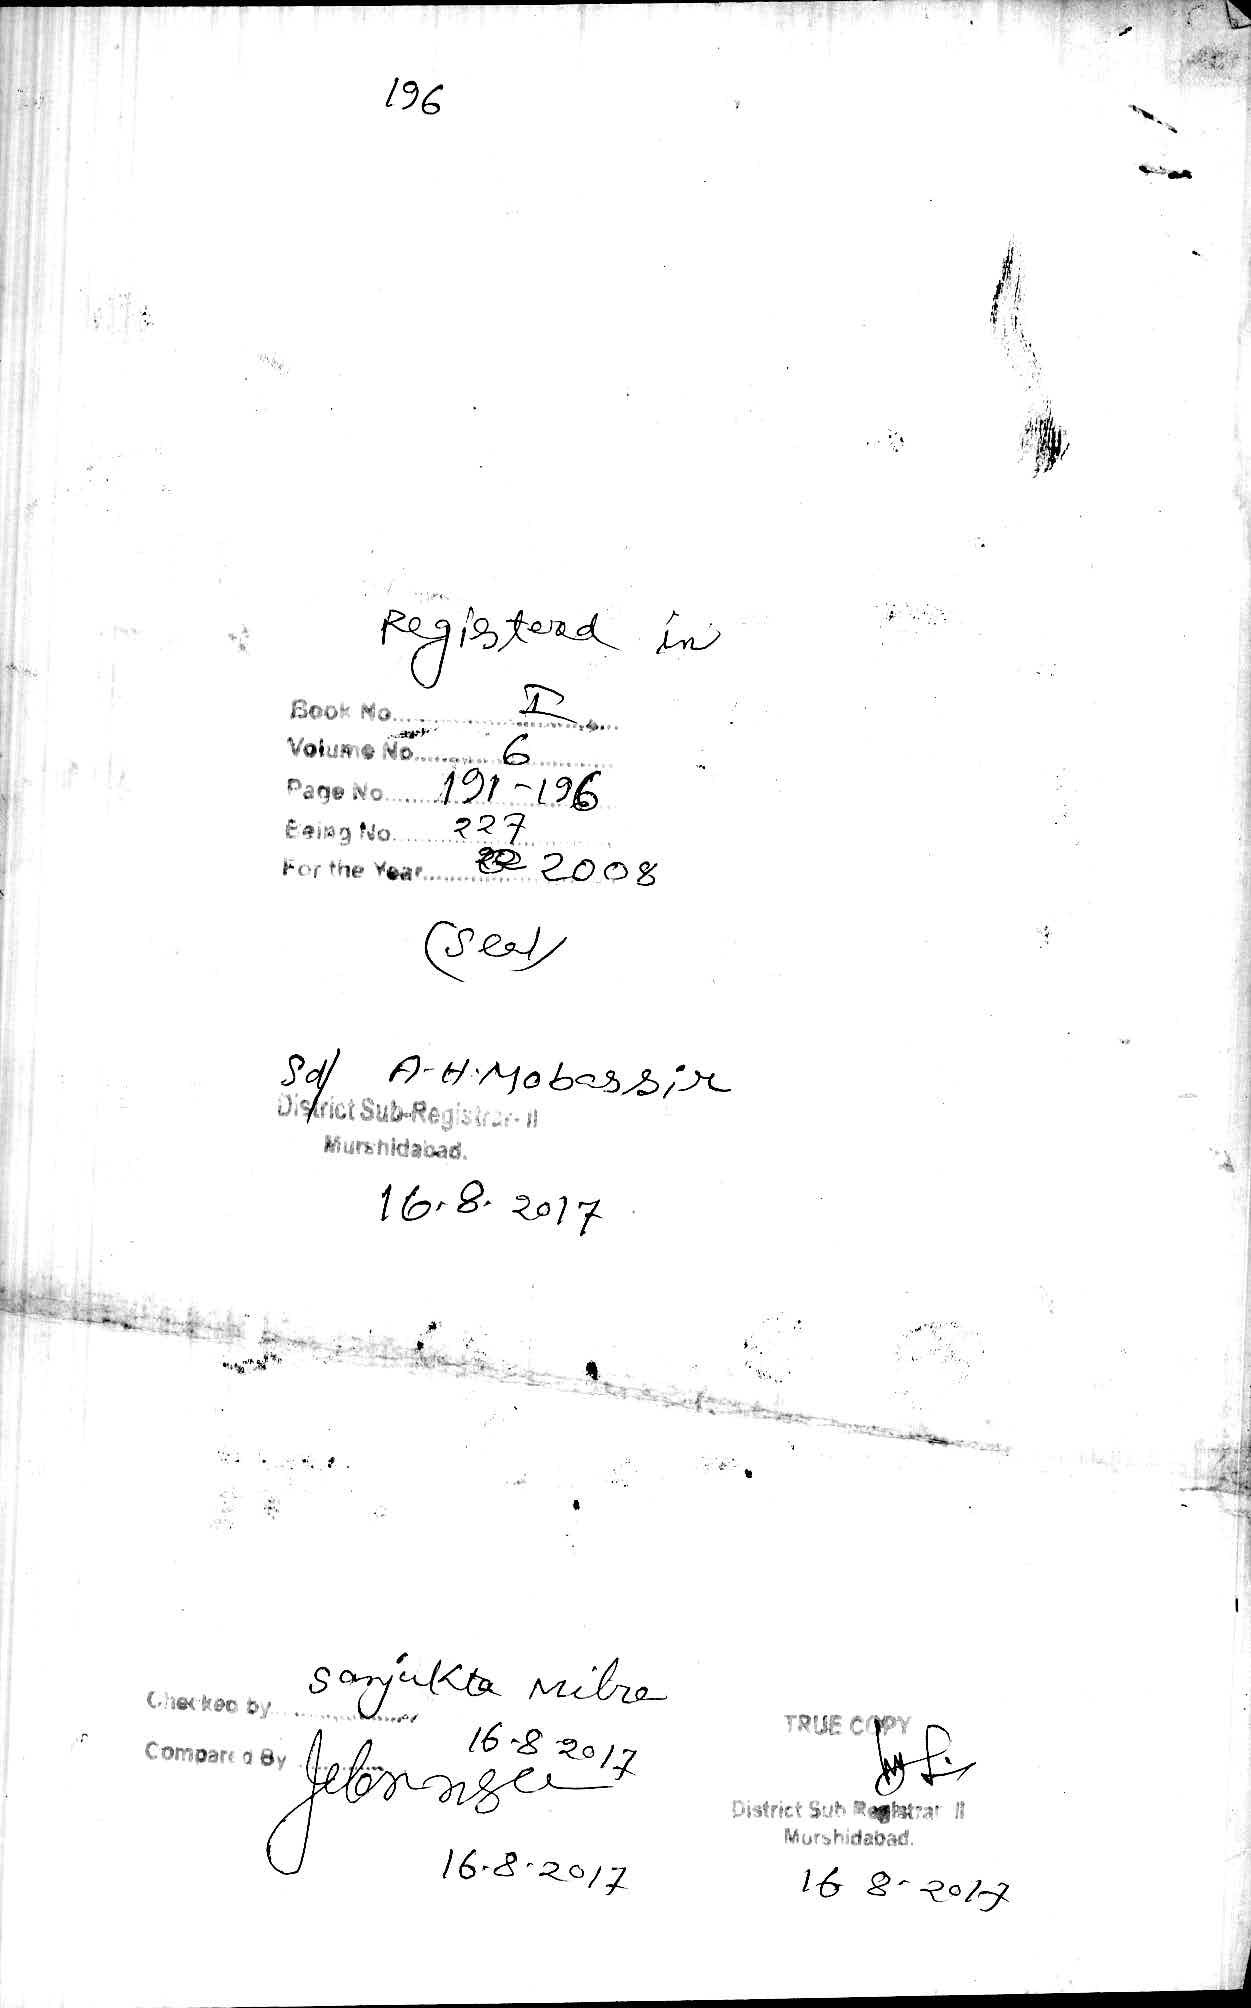 196
Registerad in
Book No.......... I
Volume No.......... 6
Page No.......... 191-196
Being No.......... 227
For the Year.......... 2008
(Seal)
Sd/ A-H.Mobassir
District Sub-Registrar-II
Murshidabad.
16.8.2017
Checked by .......... Sanjukta Mitra
16-8 2017
Compared By ..........
16.8.2017
TRUE COPY
District Sub Registrar II
Murshidabad.
16 8-2017